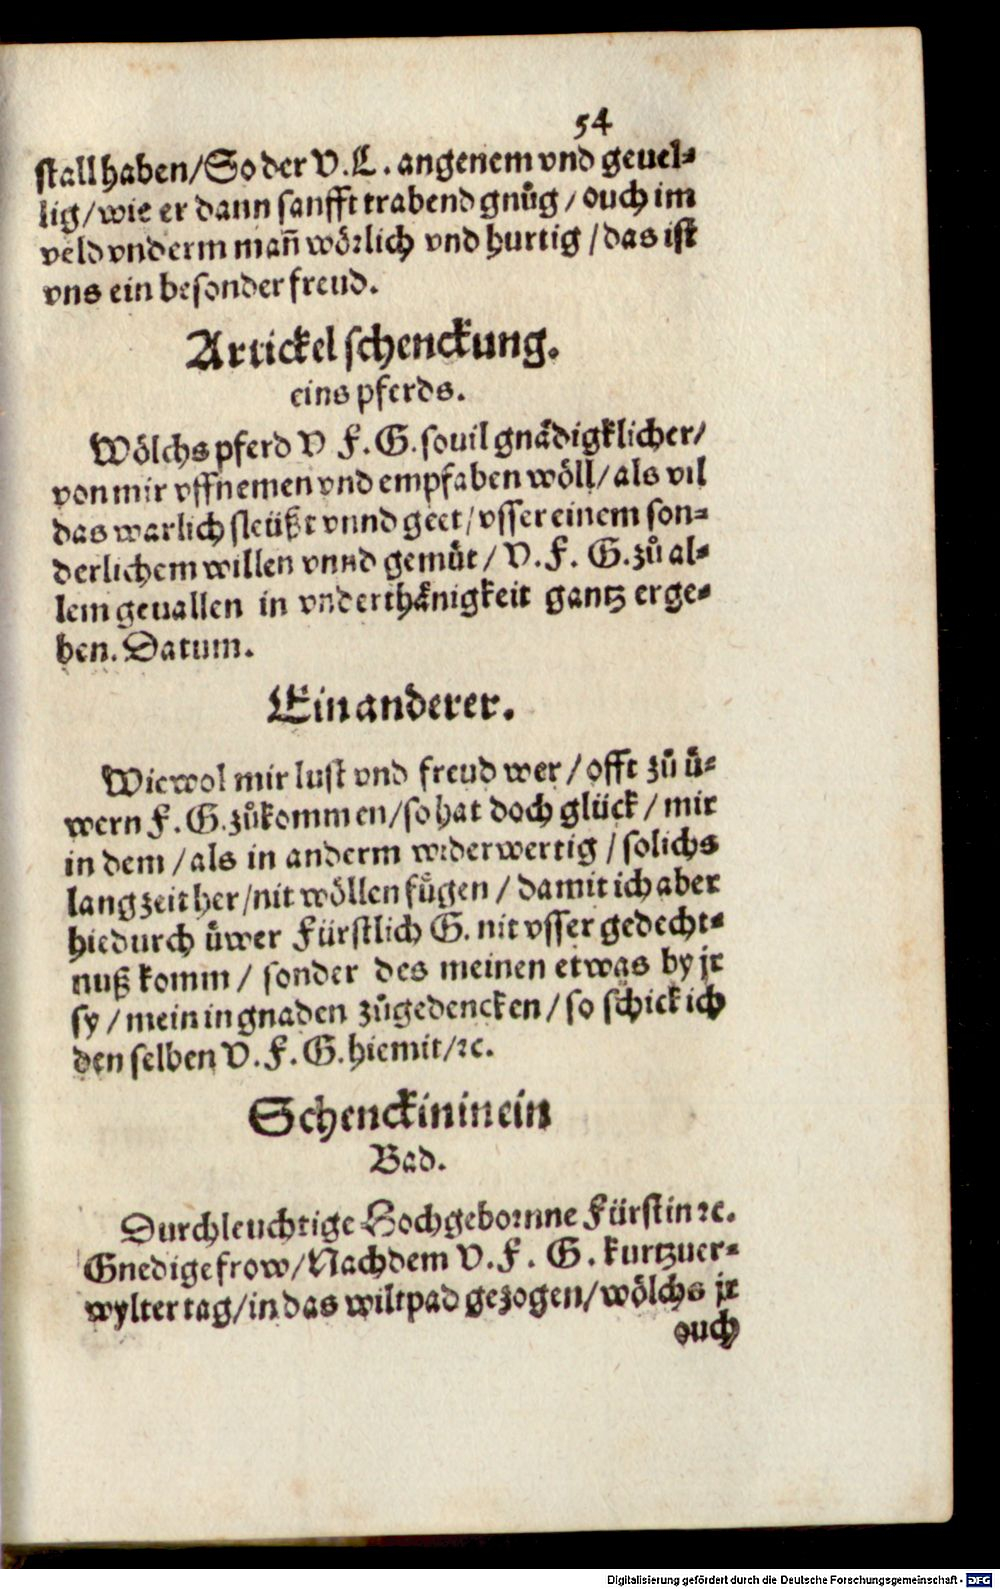 54
stall haben/So der V.L. angenem vnd geuel⸗
lig/wie er dann sanfft trabend gnůg/ouch im
veld vnderm mañ wörlich vnd hurtig/das ist
vns ein besonder freud.
Artickel schenckung.
eins pferds.
Wölchs pferd V F.G. souil gnädigklicher/
von mir vffnemen vnd empfahen wöll/als vil
das warlich sleüßt vnnd geet/vsser einem son⸗
derlichem willen vnnd gemüt/V.F.G. zů al⸗
lem geuallen in vnderthänigkeit gantz erge⸗
ben. Datum.
Ein anderer.
Wiewol mir lust vnd freud wer/offt zů ü⸗
wern F.G. zůkommen/so hat doch glück/mir
in dem/als in anderm widerwertig/solichs
lang zeit her/nit wöllen fügen/damit ich aber
hiedurch üwer Fürstlich G. nit vsser gedecht⸗
nuß komm/sonder des meinen etwas by jr
sy/mein in gnaden zůgedencken/so schick ich
den selben V.F.G. hiemit/ꝛc.
Schenck in in ein
Bad.
Durchleuchtige Hochgebornne Fürstin ꝛc.
Gnedige frow/Nachdem V.F.G. kurtzuer⸗
wylter tag/in das wiltpad gezogen/wölchs jr
ouch
Digitalisierung gefördert durch die Deutsche Forschungsgemeinschaft - DFG